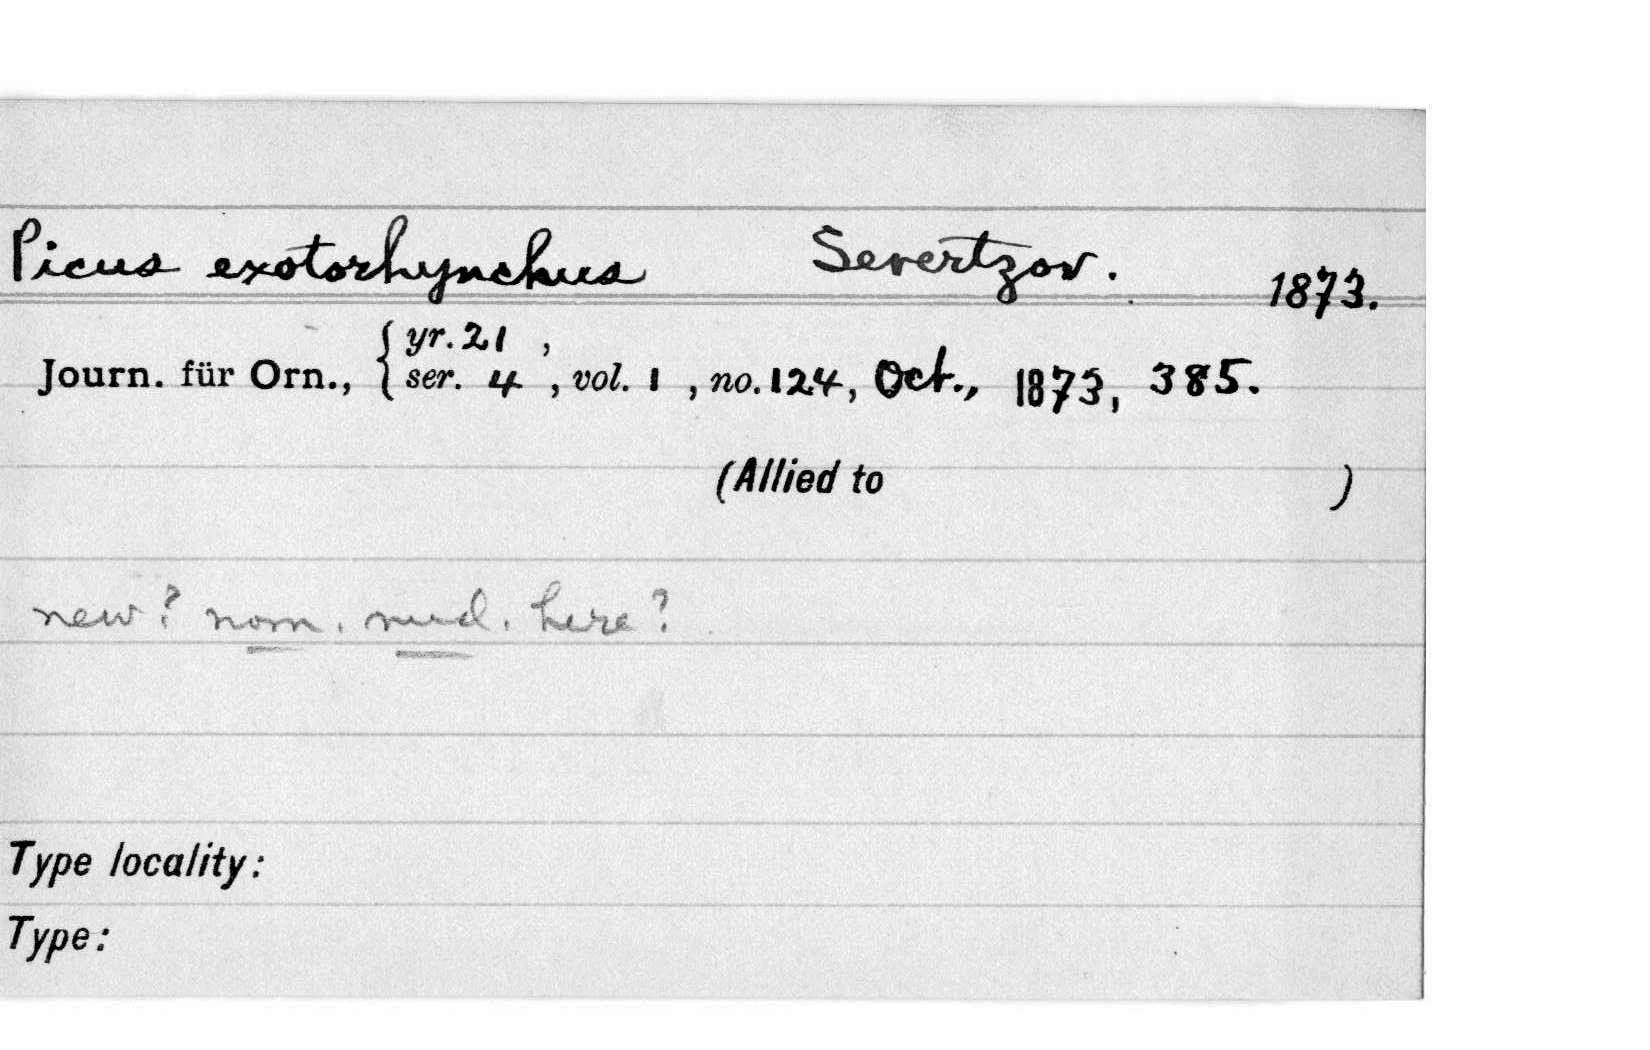 Picus exotorhynchus Severtzov. 1873.
Journ. für Orn., { yr. 21 ,
ser. 4 , vol. 1 , no. 124, Oct., 1873, 385.
(Allied to )
new? nom. nud. here?
Type locality:
Type: